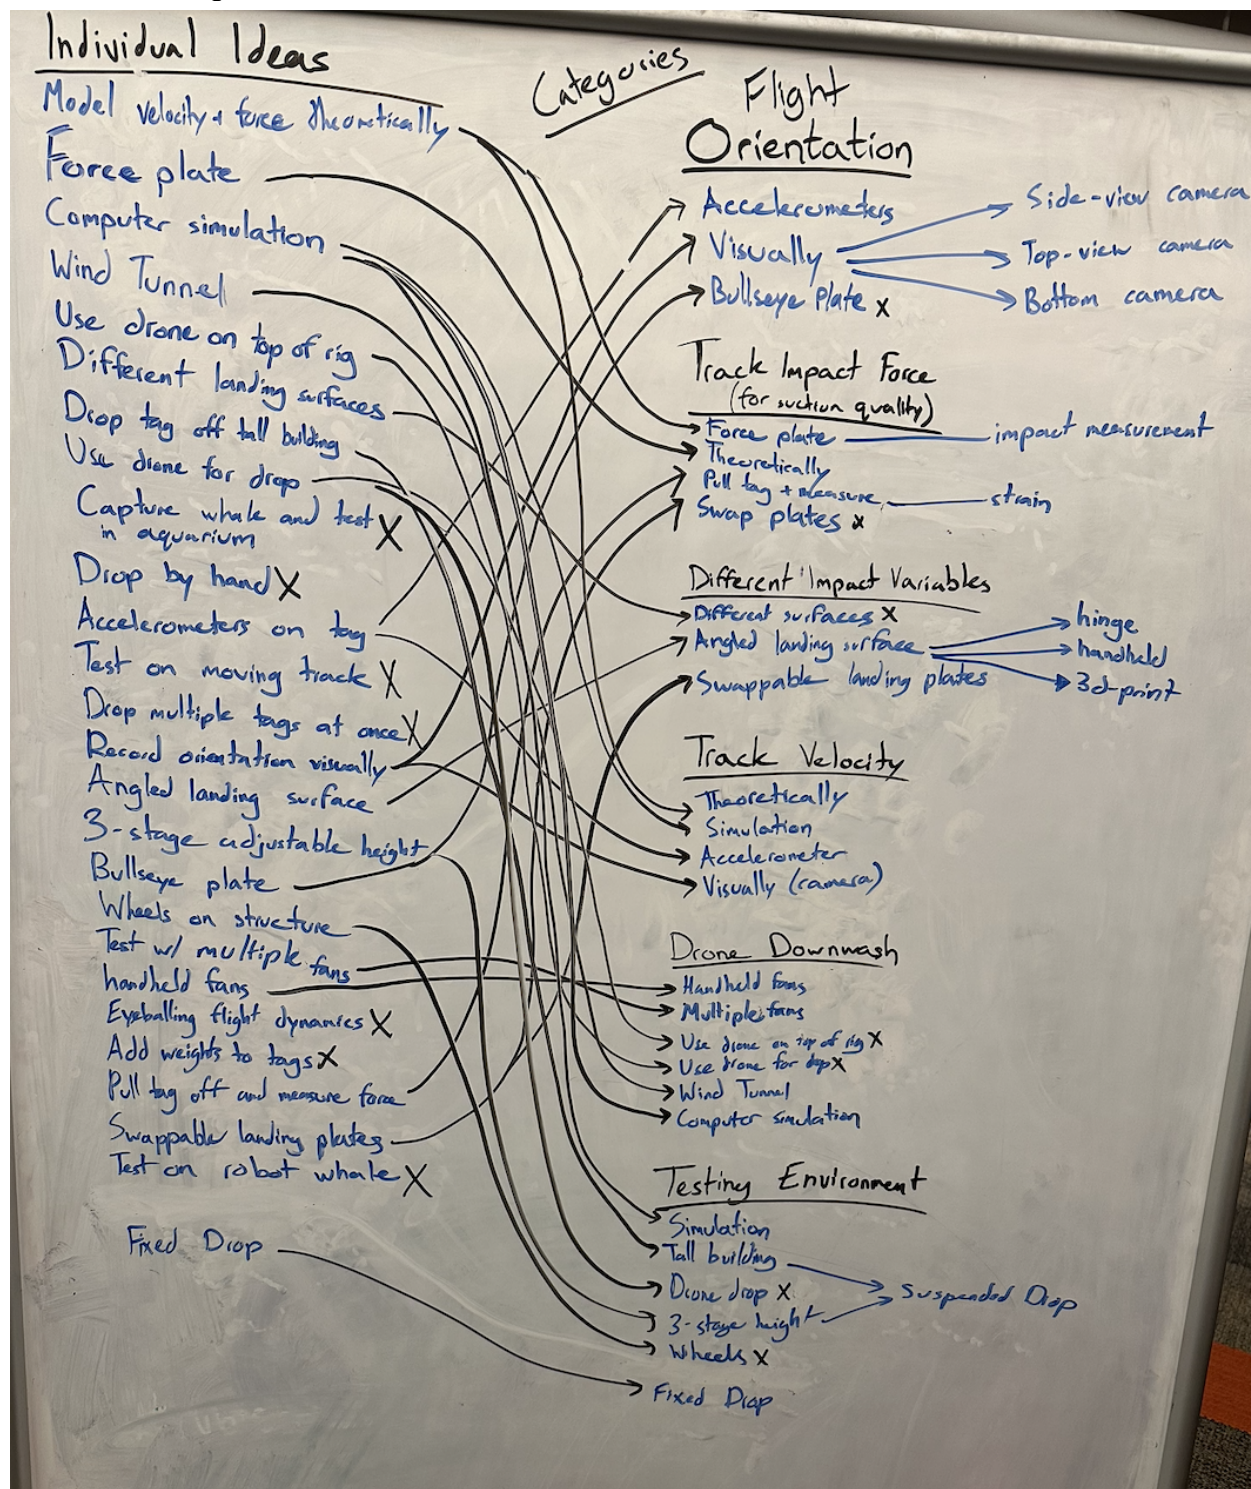 Individual Ideas
Model velocity + force theoretically
Force plate
Computer simulation
Wind Tunnel
Use drone on top of rig
Different landing surfaces
Drop tag off tall building
Use drone for drop
Capture whale and test X
in aquarium
Drop by hand X
Accelerometers on tag
Test on moving track X
Drop multiple tags at once X
Record orientation visually
Angled landing surface
3-stage adjustable height
Bullseye plate
Wheels on structure
Test w/ multiple fans
handheld fans
Eyeballing flight dynamics X
Add weights to tags X
Pull tag off and measure force
Swappable landing plates
Test on robot whale X
Fixed Drop
Categories
Flight
Orientation
Accelerometers
Visually
Side-view camera
Top-view camera
Bottom camera
Bullseye Plate x
Track Impact Force
(for suction quality)
Force plate
impact measurement
Theoretically
Pull tag + measure
strain
Swap plates x
Different Impact Variables
Different surfaces X
Angled landing surface
hinge
handheld
3d-print
Swappable landing plates
Track Velocity
Theoretically
Simulation
Accelerometer
Visually (camera)
Drone Downwash
Handheld fans
Multiple fans
Use drone on top of rig X
Use drone for drop X
Wind Tunnel
Computer simulation
Testing Environment
Simulation
Tall building
Drone drop X
3-stage height
Suspended Drop
Wheels X
Fixed Drop